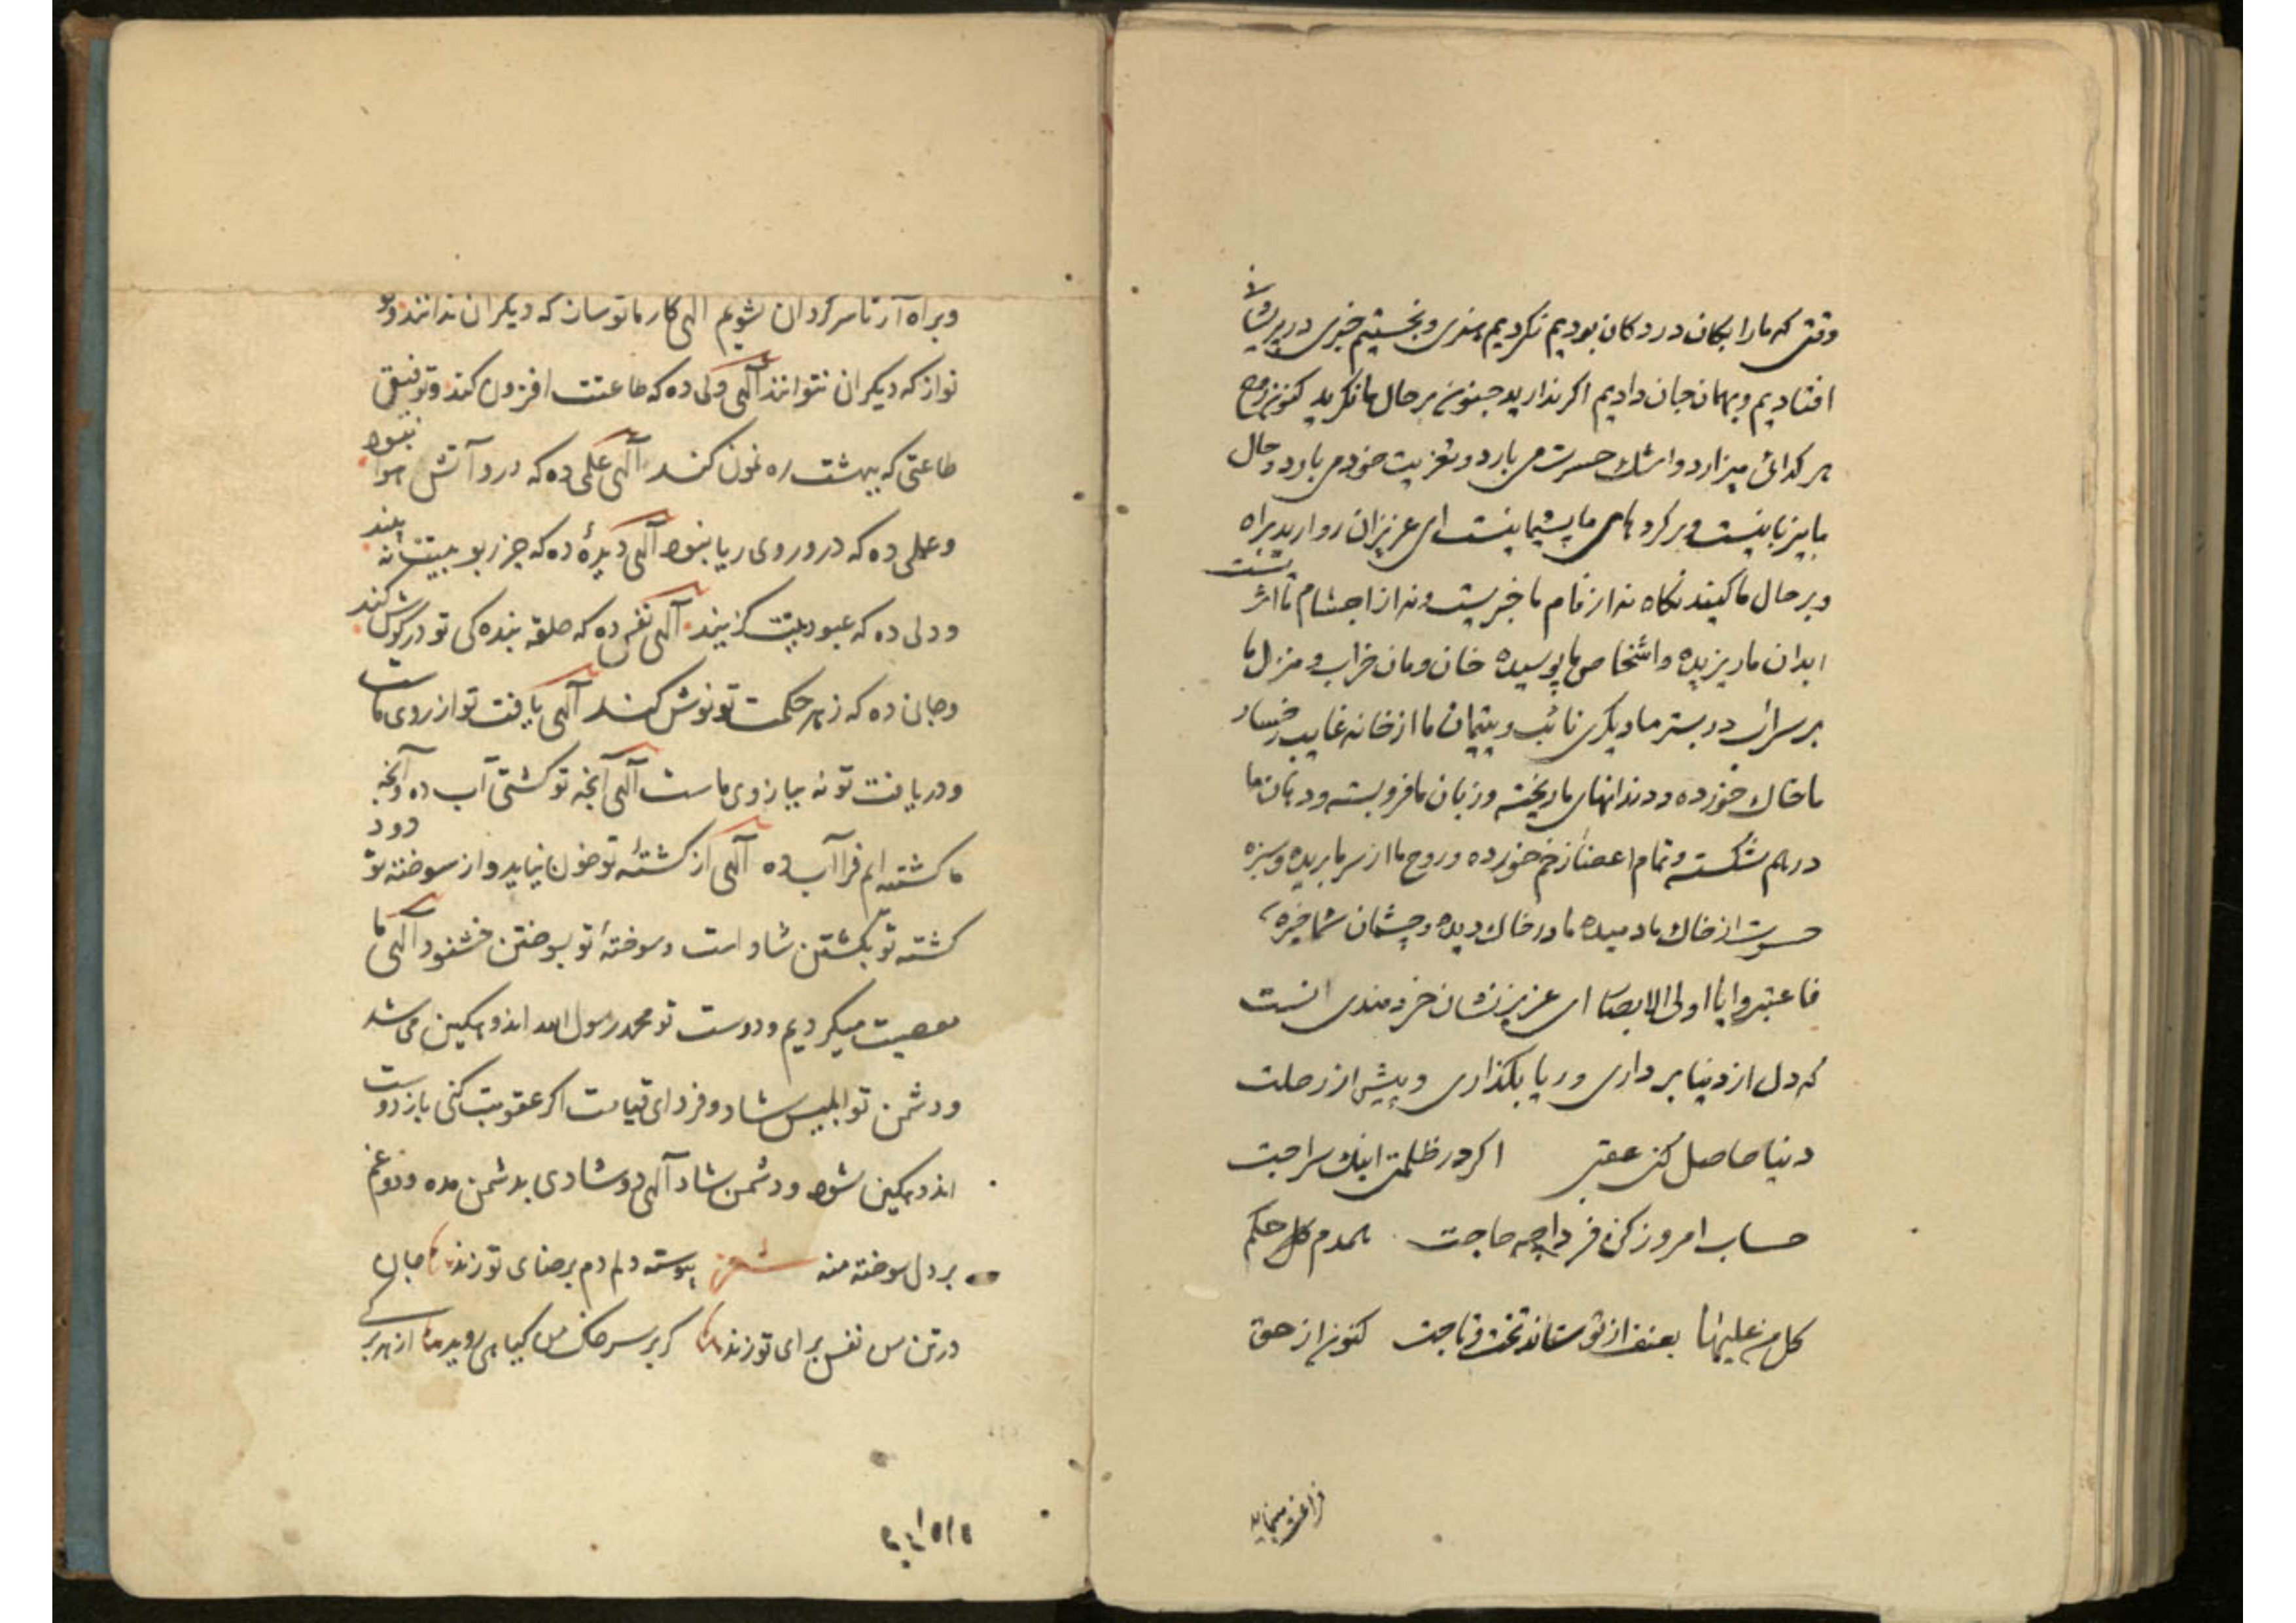 وقتی که مارا بکان در دکان بودیم نکردیم هنری و نجستیم خبری در پریشانی
افتادیم و بهمان جان دادیم اکر ندارید جنون بر حال ما نکرید کنون روح
هر کدائی میزارد و اشک حسرت می بارد و تعزیت خود می بارد و حال
ما پیر نابینست و بر کردهای ما پشیمانیست ای عزیزان روا رید براه
و بر حال ما کنید نکاه نه از نام ما خبریست و نه از اجسام ما اثریست
ابدان ما ریزیده و اشخاص ما پوسیده خان و مان خراب و منزل ما
بر سراب در بستر ما دیکری نائب و یتیمان ما از خانه غایب رخسار
ما خاک خورده و دندانهای ما ریخته و زبان ما فرو بسته و دهان ما
درهم شکسته و تمام اعضا زخم خورده و روح ما از سر ما بریده و سبزه
حسرت از خاک ما دمیده ما در خاک دیده و چشمان شما خیره
فاعتبروا یا اولی الابصار ای عزیز نشان خردمندی انست
که دل از دنیا برداری و ریا بکذاری و پیش از رحلت
دنیا حاصل کنی عقبی اکر در ظلمتی اینک سراجت
حساب امروز کن فردا چه حاجت همدم کل حکم
کل من علیها بعنف از تو ستاند تخت و تاجت کنون از حق
فراغت مینماید
و براه آر تا سر کردان نشویم الهی کار ما تو ساز که دیکران ندانند و تو
نواز که دیکران نتوانند الهی دلی ده که طاعتت افزون کند و توفیق
طاعتی که ببهشت ره نمون کند الهی علمی ده که درو آتش هوا نبود
و عملی ده که درو روی ریا نبود الهی دیدهٔ ده که جز ربوبیتت نه بیند
و دلی ده که عبودیتت کزیند الهی نفس ده که حلقه بنده کی تو در کوش کند
و جانی ده که زهر حکمت تو نوش کند الهی یافت تو از روی ماست
و دریافت تو نه ببازوی ماست الهی آنچه تو کشتی آب ده و آنچه
ما کشته ایم فرا آب ده الهی از کشتهٔ تو خون نیاید و از سوخته تو دود
کشته تو بکشتن شاد است و سوختهٔ تو بسوختن خشنود الهی ما
معصیت میکردیم و دوست تو محمد رسول الله اندوهکین می شد
و دشمن تو ابلیس شاد و فردای قیامت اکر عقوبت کنی باز دوست
اندوهکین شود و دشمن شاد الهی دو شادی بدشمن مده و دو غم
بر دل سوخته منه شعر پیوسته دلم دم برضای تو زند جان
در تن من نفس برای تو زند کر بر سر خاک من کیاهی روید از هر برکی